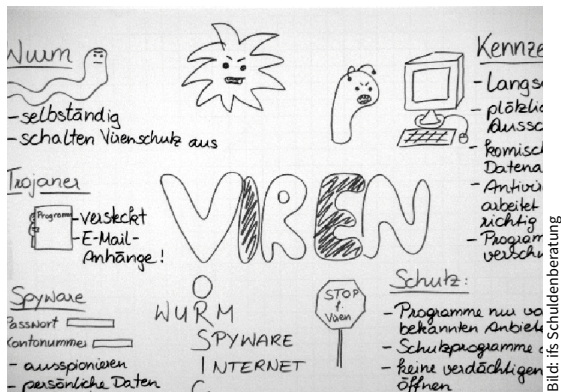 Wurm
- selbständig
- schalten Virenschutz aus
Trojaner
Programm
- versteckt
- E-Mail-
Anhänge!
Spyware
Passwort
Kontonummer
- ausspionieren
- persönliche Daten
VIREN
O
WURM
SPYWARE
INTERNET
STOP
f.
Viren
Kennze
- Langs
- plötzlic
Aussc
- komisch
Datena
- Antivi
arbeitet
richtig
- Program
versch
Schutz:
- Programme nur vo
bekannten Anbiete
- Schutzprogramme
- keine verdächtigen
öffnen
Bild: ifs Schuldenberatung